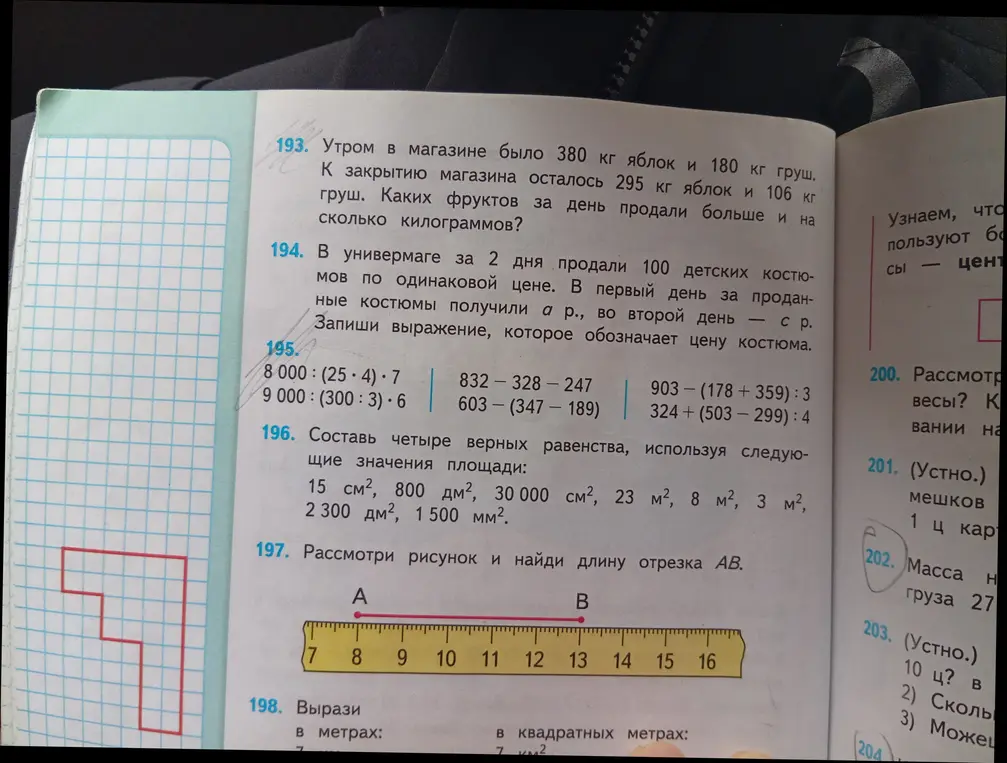 193. Утром в магазине было 380 кг яблок и 180 кг груш.
К закрытию магазина осталось 295 кг яблок и 106 кг
груш. Каких фруктов за день продали больше и на
сколько килограммов?
194. В универмаге за 2 дня продали 100 детских костю-
мов по одинаковой цене. В первый день за продан-
ные костюмы получили a р., во второй день — c р.
Запиши выражение, которое обозначает цену костюма.
195.
8 000 : (25 · 4) · 7
9 000 : (300 : 3) · 6
832 − 328 − 247
603 − (347 − 189)
903 − (178 + 359) : 3
324 + (503 − 299) : 4
196. Составь четыре верных равенства, используя следую-
щие значения площади:
15 см², 800 дм², 30 000 см², 23 м², 8 м², 3 м²,
2 300 дм², 1 500 мм².
197. Рассмотри рисунок и найди длину отрезка AB.
A B
7 8 9 10 11 12 13 14 15 16
198. Вырази
в метрах:
в квадратных метрах:
7 км²
Узнаем, что
пользуют
сы — цент
200. Рассмотр
весы? К
вании на
201. (Устно.)
мешков
1 ц кар
202. Масса н
груза 27
203. (Устно.)
10 ц? в
2) Сколь
3) Може
204